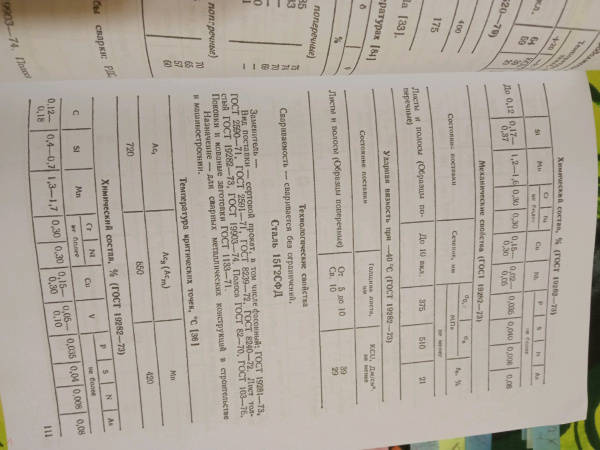 Химический состав, % (ГОСТ 19282—73)
Si Mn Cr Ni Cu Nb P S N As
не более не более
До 0,12 0,17—0,37 1,2—1,6 0,30 0,30 0,15—0,30 0,02—0,05 0,035 0,040 0,008 0,08
Механические свойства (ГОСТ 19282—73)
Состояние поставки Сечение, мм σ0,2 σв δ5, %
МПа
не менее
Листы и полосы (Образцы поперечные) До 10 вкл. 375 510 21
Ударная вязкость при —40 °С (ГОСТ 19282—73)
Состояние поставки Толщина листа, мм KCU, Дж/см², не менее
Листы и полосы (Образцы поперечные) От 5 до 10 39
Св. 10 29
Технологические свойства
Свариваемость — сваривается без ограничений.
Сталь 15Г2СФД
Заменитель —
Вид поставки — сортовой прокат, в том числе фасонный: ГОСТ 19281—73,
ГОСТ 2590—71, ГОСТ 2591—71, ГОСТ 8239—72, ГОСТ 8240—72. Лист тол-
стый ГОСТ 19282—73, ГОСТ 19903—74. Полоса ГОСТ 82—70, ГОСТ 103—76.
Поковки и кованые заготовки ГОСТ 1133—71.
Назначение — для сварных металлических конструкций в строительстве
и машиностроении.
Температура критических точек, °С [36]
Ac₁ Ac₃ (Acm) Mн
720 850 420
Химический состав, % (ГОСТ 19282—73)
C Si Mn Cr Ni Cu V P S N As
не более не более
0,12—0,18 0,4—0,7 1,3—1,7 0,30 0,30 0,15—0,30 0,05—0,10 0,035 0,04 0,008 0,08
111
поперечные)
400
175